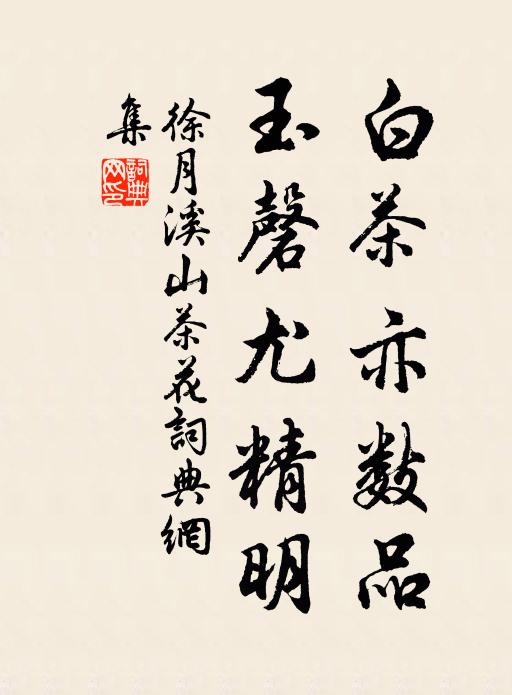 白茶亦数品
玉磬尤精明
徐月溪山茶花詞典網
集
詞典
网印